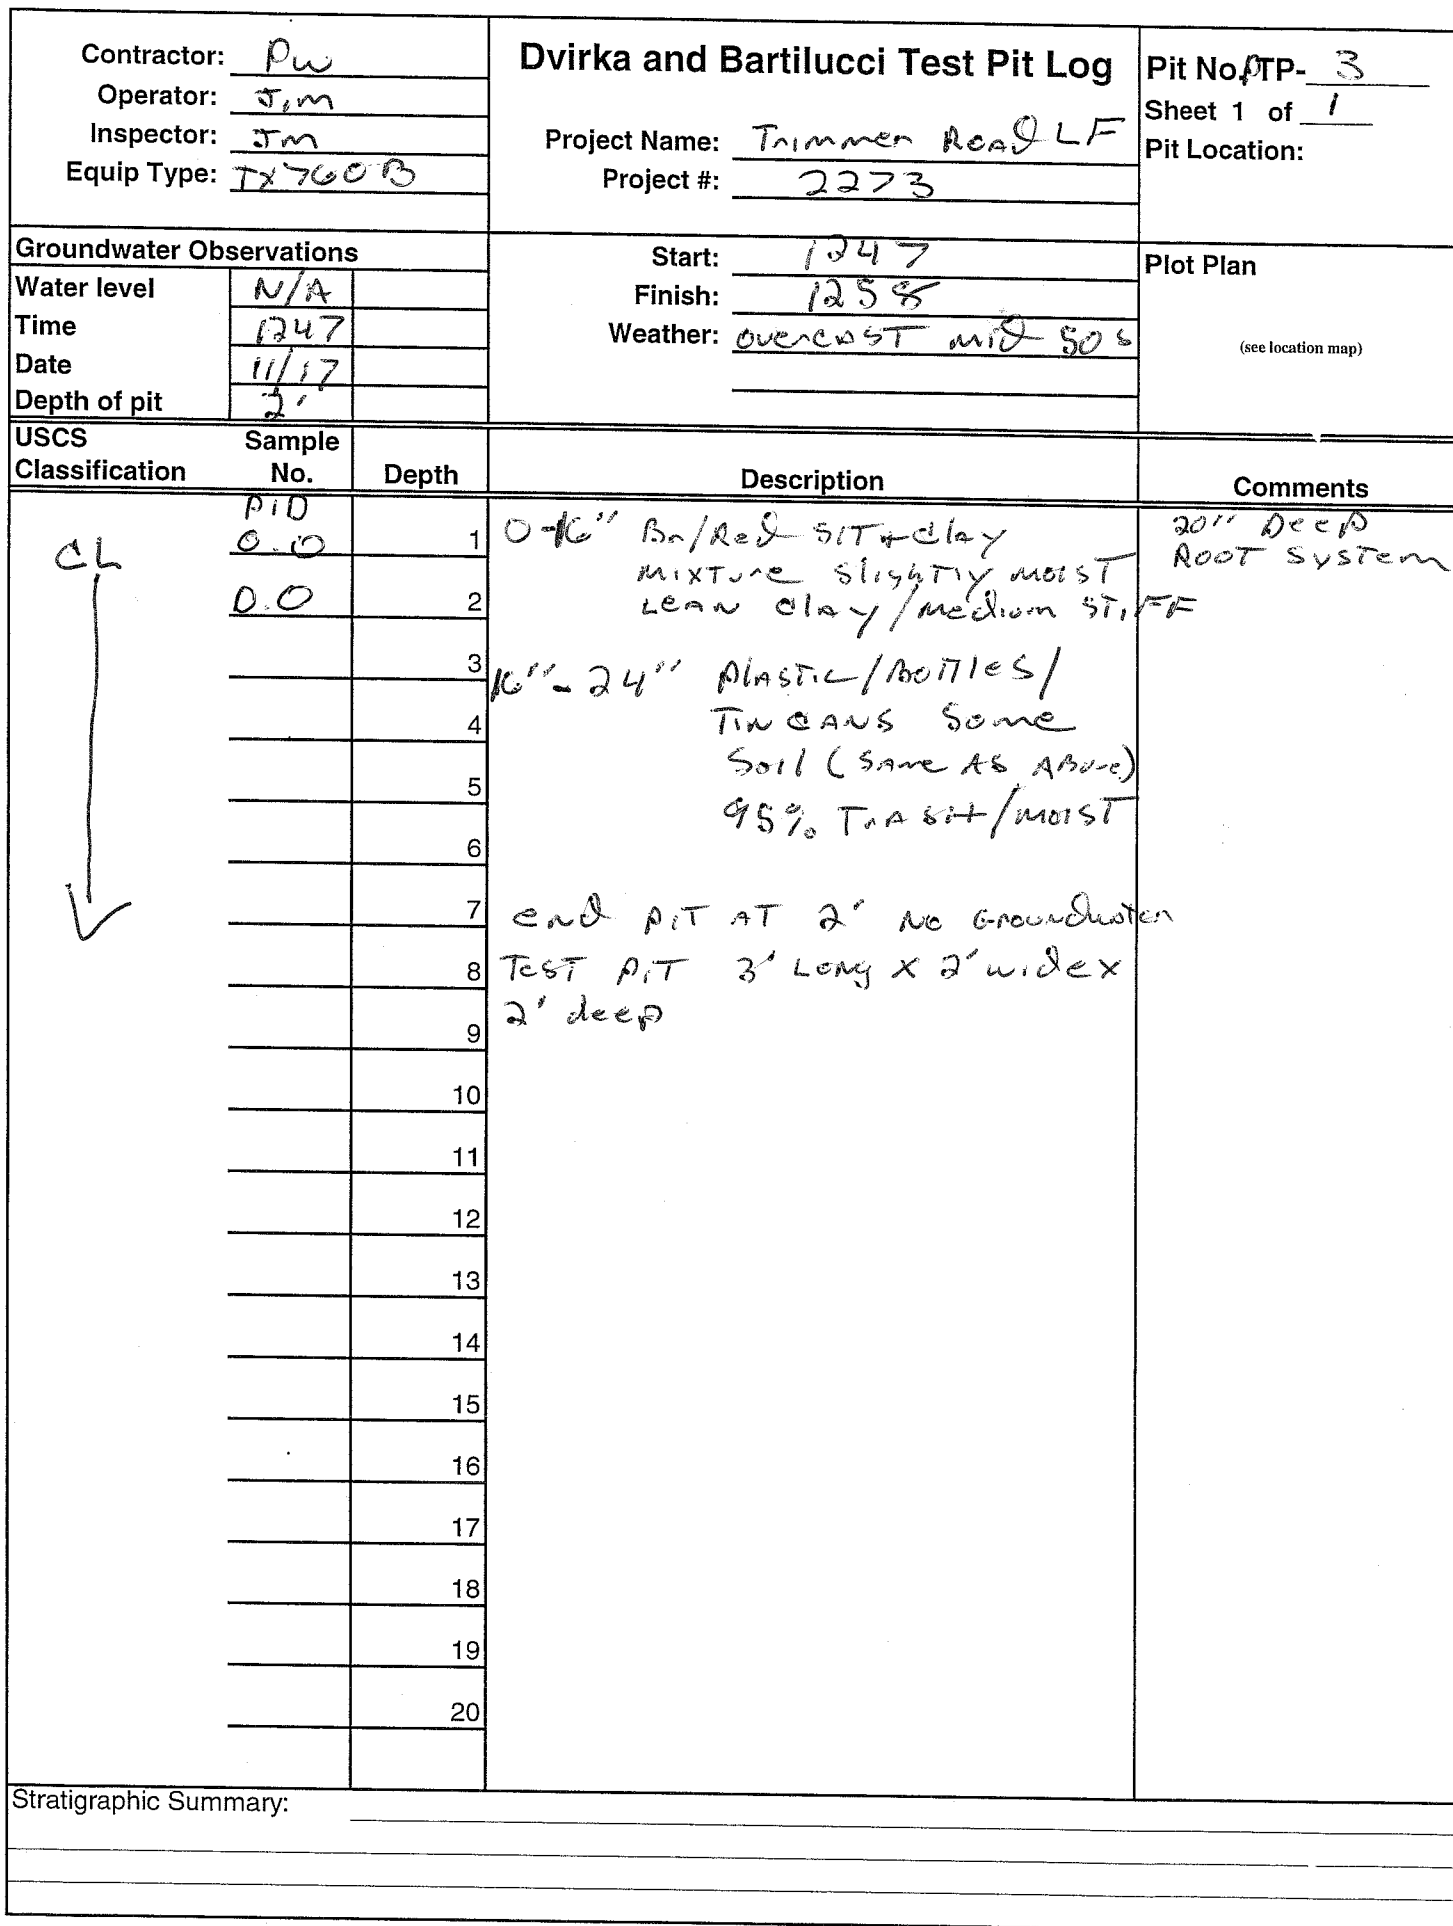 Contractor: PW
Operator: Jim
Inspector: JM
Equip Type: TX760B
Dvirka and Bartilucci Test Pit Log
Project Name: Trimmer Road LF
Project #: 2273
Pit No. PTP- 3
Sheet 1 of 1
Pit Location:
Groundwater Observations
Water level N/A
Time 1247
Date 11/17
Depth of pit 2'
Start: 1247
Finish: 1258
Weather: overcast mid 50s
Plot Plan
(see location map)
USCS Classification Sample No. Depth Description Comments
PID
CL 0.0 1 0-16" Bn/Red SIT + Clay 20" Deep
mixture slightly moist ROOT System
0.0 2 Lean clay/medium stiff
3 16"- 24" Plastic/Bottles/
4 Tin cans Some
Soil (Same As Above)
5
95% Trash/moist
6
7 end pit AT 2' No Groundwater
8 Test pit 3' Long x 2' wide x
2' deep
9
10
11
12
13
14
15
16
17
18
19
20
Stratigraphic Summary: